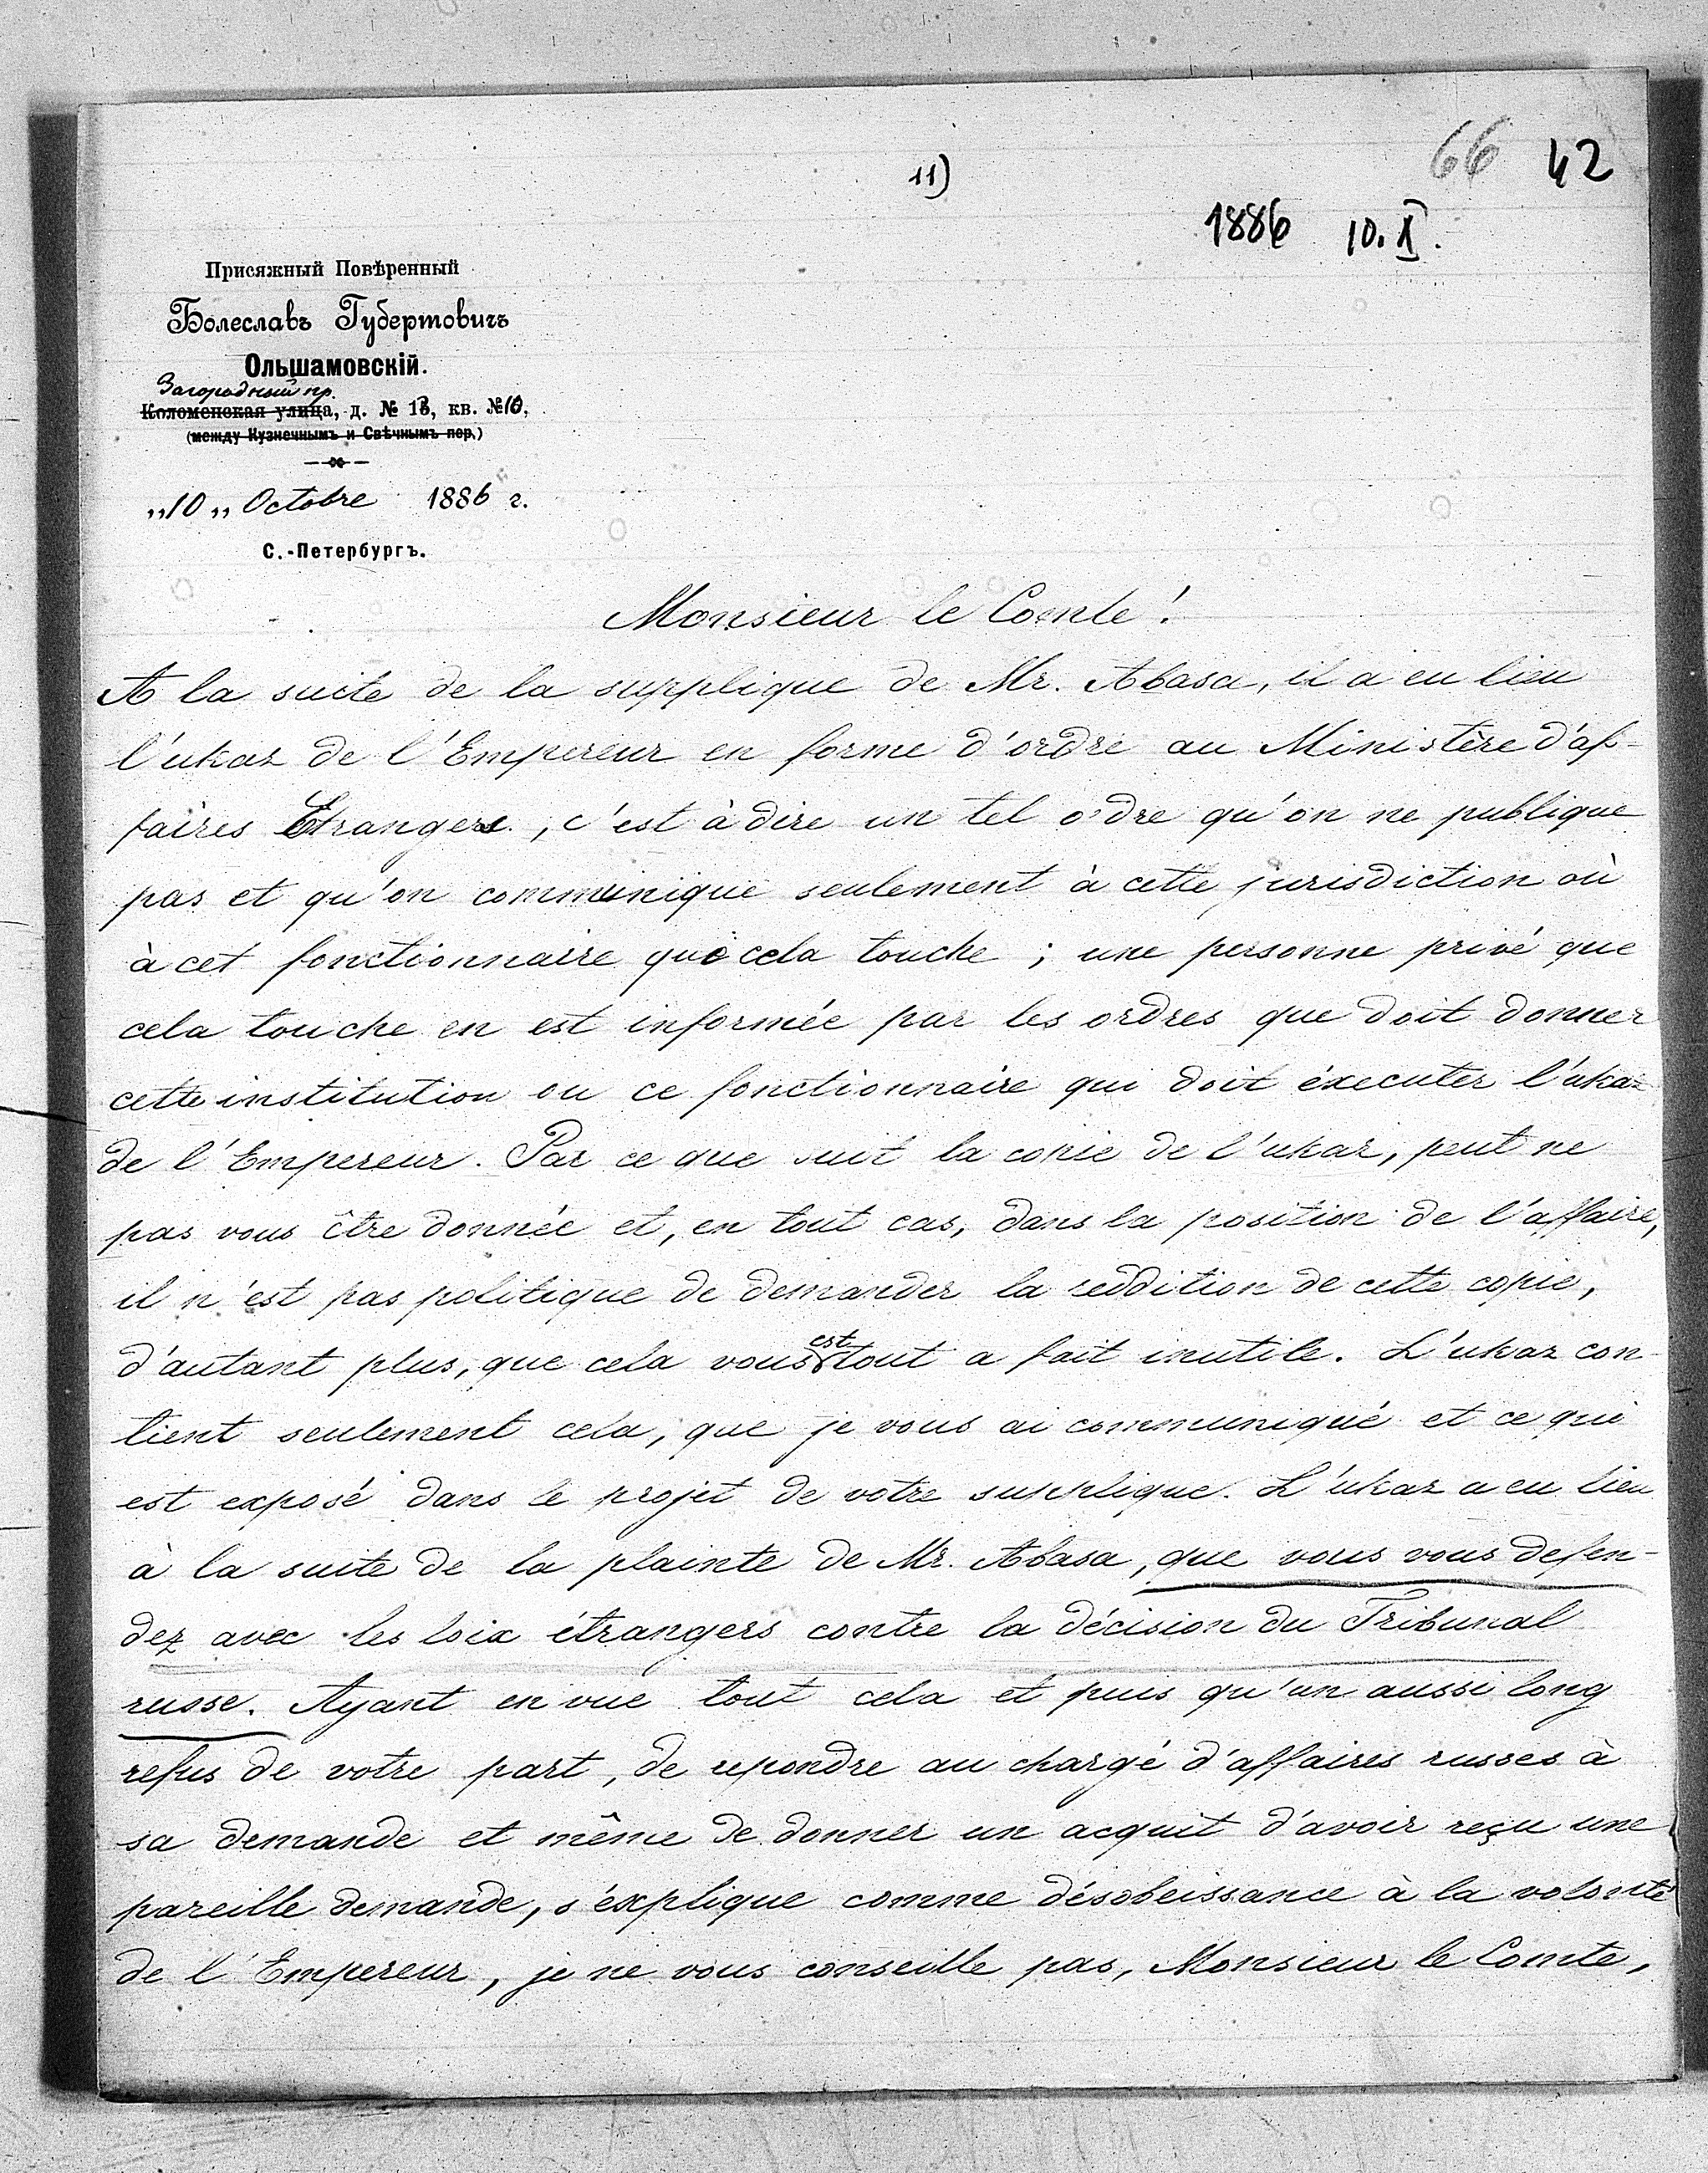 66 42
11)
1886 10. X.
Присяжный Повѣренный
Болеславъ Губертовичъ
Ольшамовскій.
Загородный пр.
Коломенская улица, д. № 13, кв. №10,
(между Кузнечнымъ и Свѣчнымъ пер.)
„10„ Octobre 1886 г.
С.-Петербургъ.
Monsieur le Comte!
A la suite de la supplique de Mr. Abasa, il a eu lieu
l'ukaz de l'Empereur en forme d'ordre au Ministère d'af-
faires Etrangers, c'est à dire un tel ordre qu'on ne publique
pas et qu'on communique seulement à cette jurisdiction où
à cet fonctionnaire que cela touche; une personne privé que
cela touche en est informée par les ordres que doit donner
cette institution ou ce fonctionnaire qui doit éxecuter l'ukaz
de l'Empereur. Par ce que suit la copie de l'ukaz, peut ne
pas vous être donnée et, en tout cas, dans la position de l'affaire,
il n'est pas politique de demander la reddition de cette copie,
d'autant plus, que cela vous est tout a fait inutile. L'ukaz con-
tient seulement cela, que je vous ai communiqué et ce qui
est exposé dans le projet de votre supplique. L'ukaz a eu lieu
à la suite de la plainte de Mr. Abasa, que vous vous defen-
dez avec les loix étrangers contre la décision du Tribunal
russe. Ayant en vue tout cela et puis qu'un aussi long
refus de votre part, de repondre au chargé d'affaires russes à
sa demande et même de donner un acquit d'avoir reçu une
pareille demande, s'explique comme désobeissance à la volonté
de l'Empereur, je ne vous conseille pas, Monsieur le Comte,